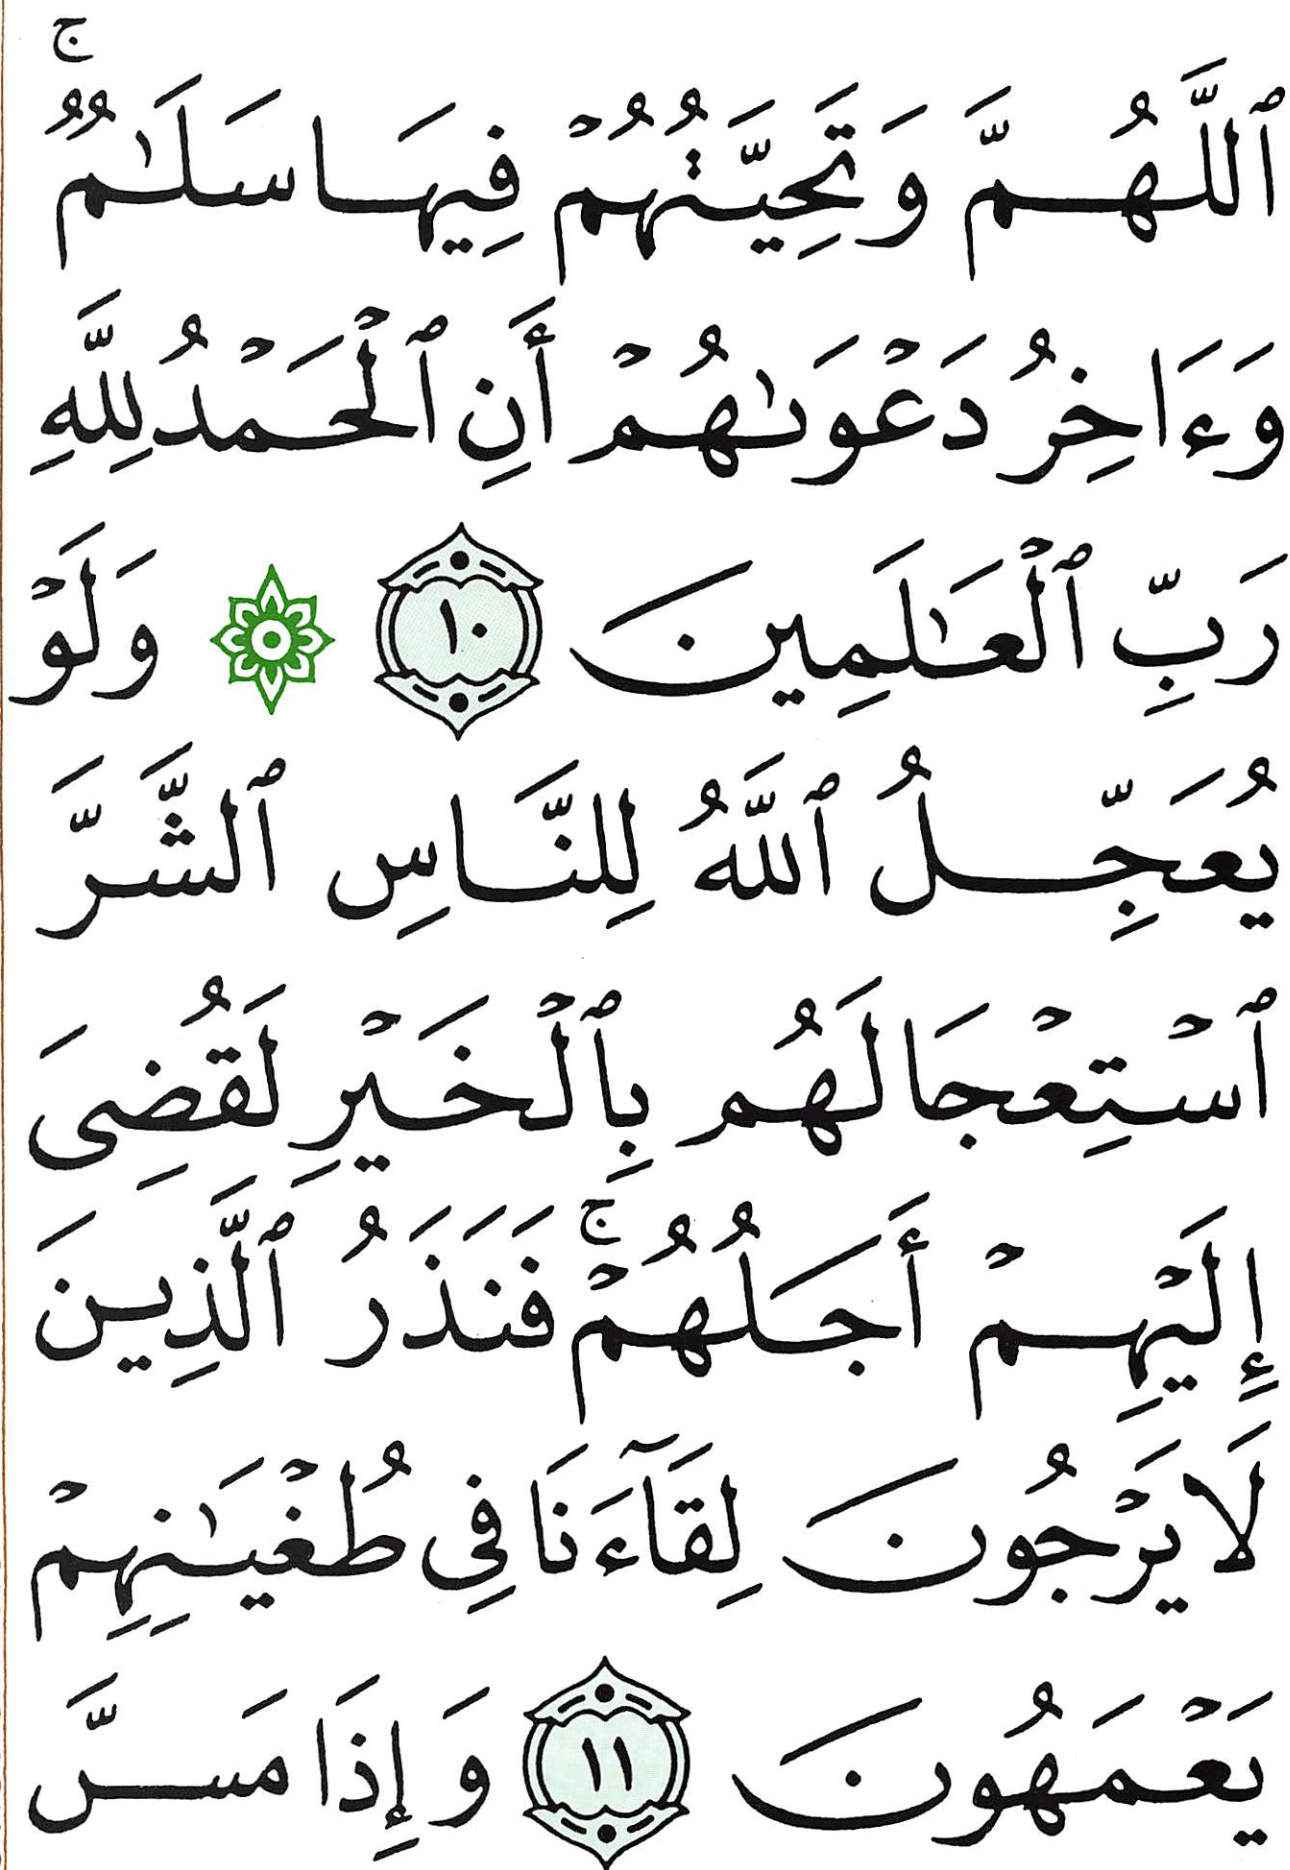 ٱللَّهُمَّ وَتَحِيَّتُهُمْ فِيهَا سَلَـٰمٌ ۚ
وَءَاخِرُ دَعْوَىٰهُمْ أَنِ ٱلْحَمْدُ لِلَّهِ
رَبِّ ٱلْعَـٰلَمِينَ ١٠ ۞ وَلَوْ
يُعَجِّلُ ٱللَّهُ لِلنَّاسِ ٱلشَّرَّ
ٱسْتِعْجَالَهُم بِٱلْخَيْرِ لَقُضِىَ
إِلَيْهِمْ أَجَلُهُمْ ۚ فَنَذَرُ ٱلَّذِينَ
لَا يَرْجُونَ لِقَآءَنَا فِى طُغْيَـٰنِهِمْ
يَعْمَهُونَ ١١ وَإِذَا مَسَّ